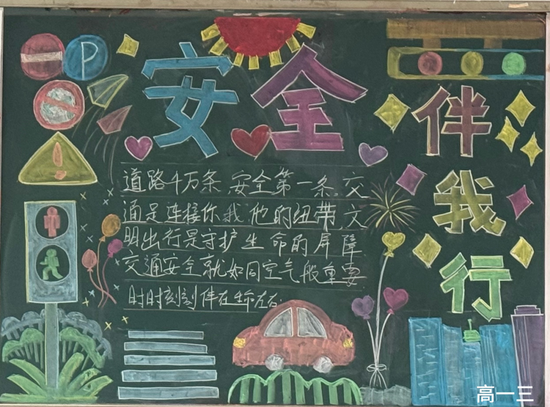 P
安全
伴我行
道路千万条安全第一条交
通是连接你我他的纽带文
明出行是守护生命的屏障
交通安全就如同空气般重要
时时刻刻伴在生命左右
高一三